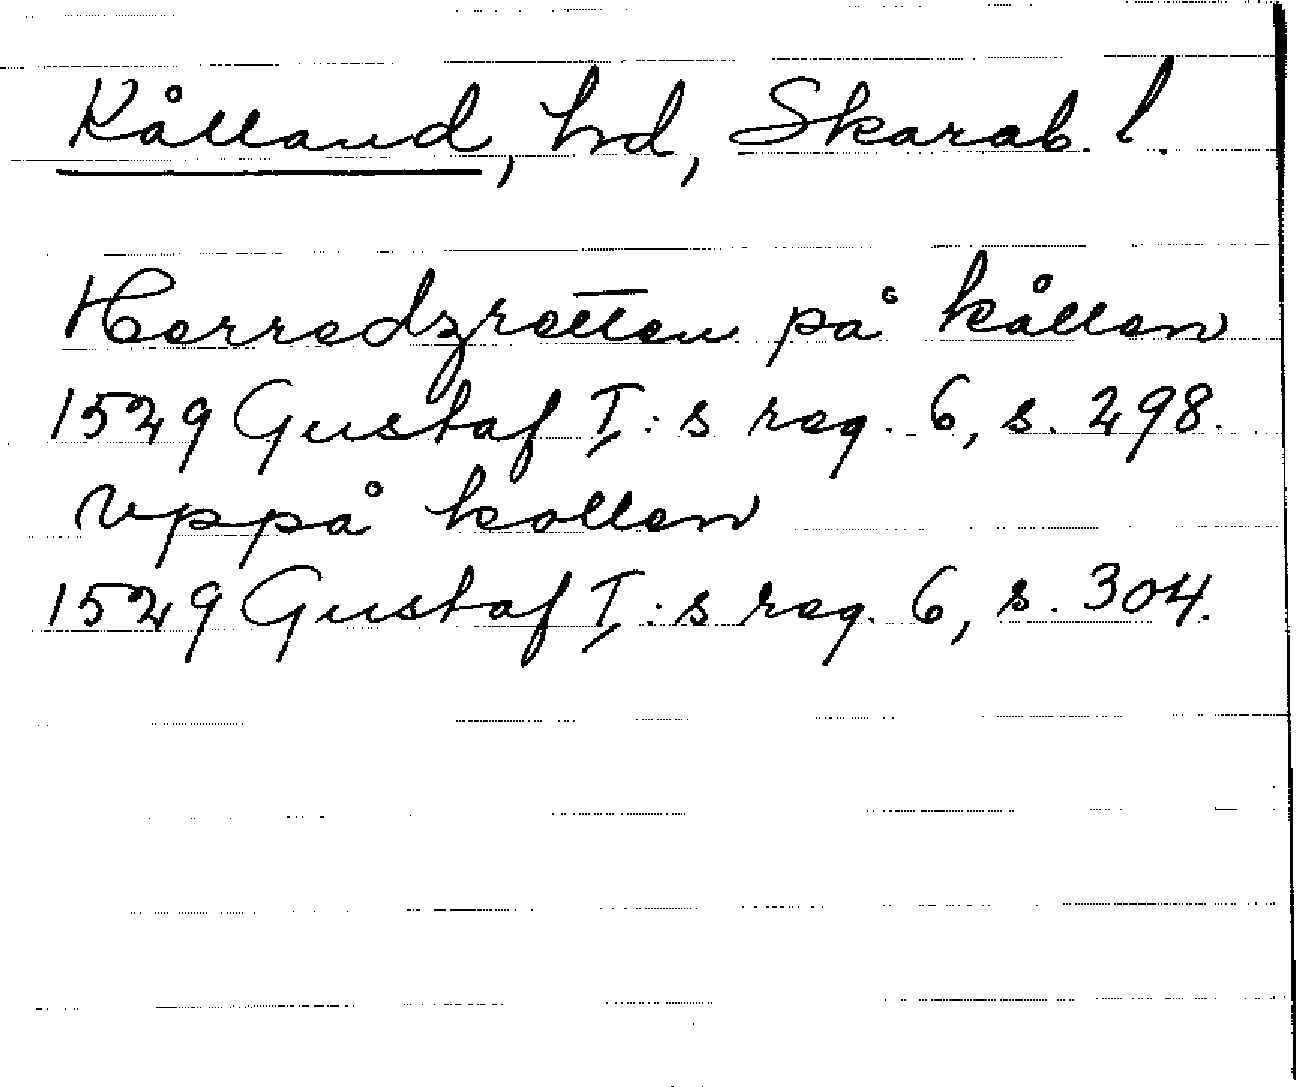 Kålland, hd, Skarab. l.
Herredzretten på kållen
1529 Gustaf I:s reg. 6, s. 298.
vppå kollen
1529 Gustaf I:s reg. 6, s. 304.